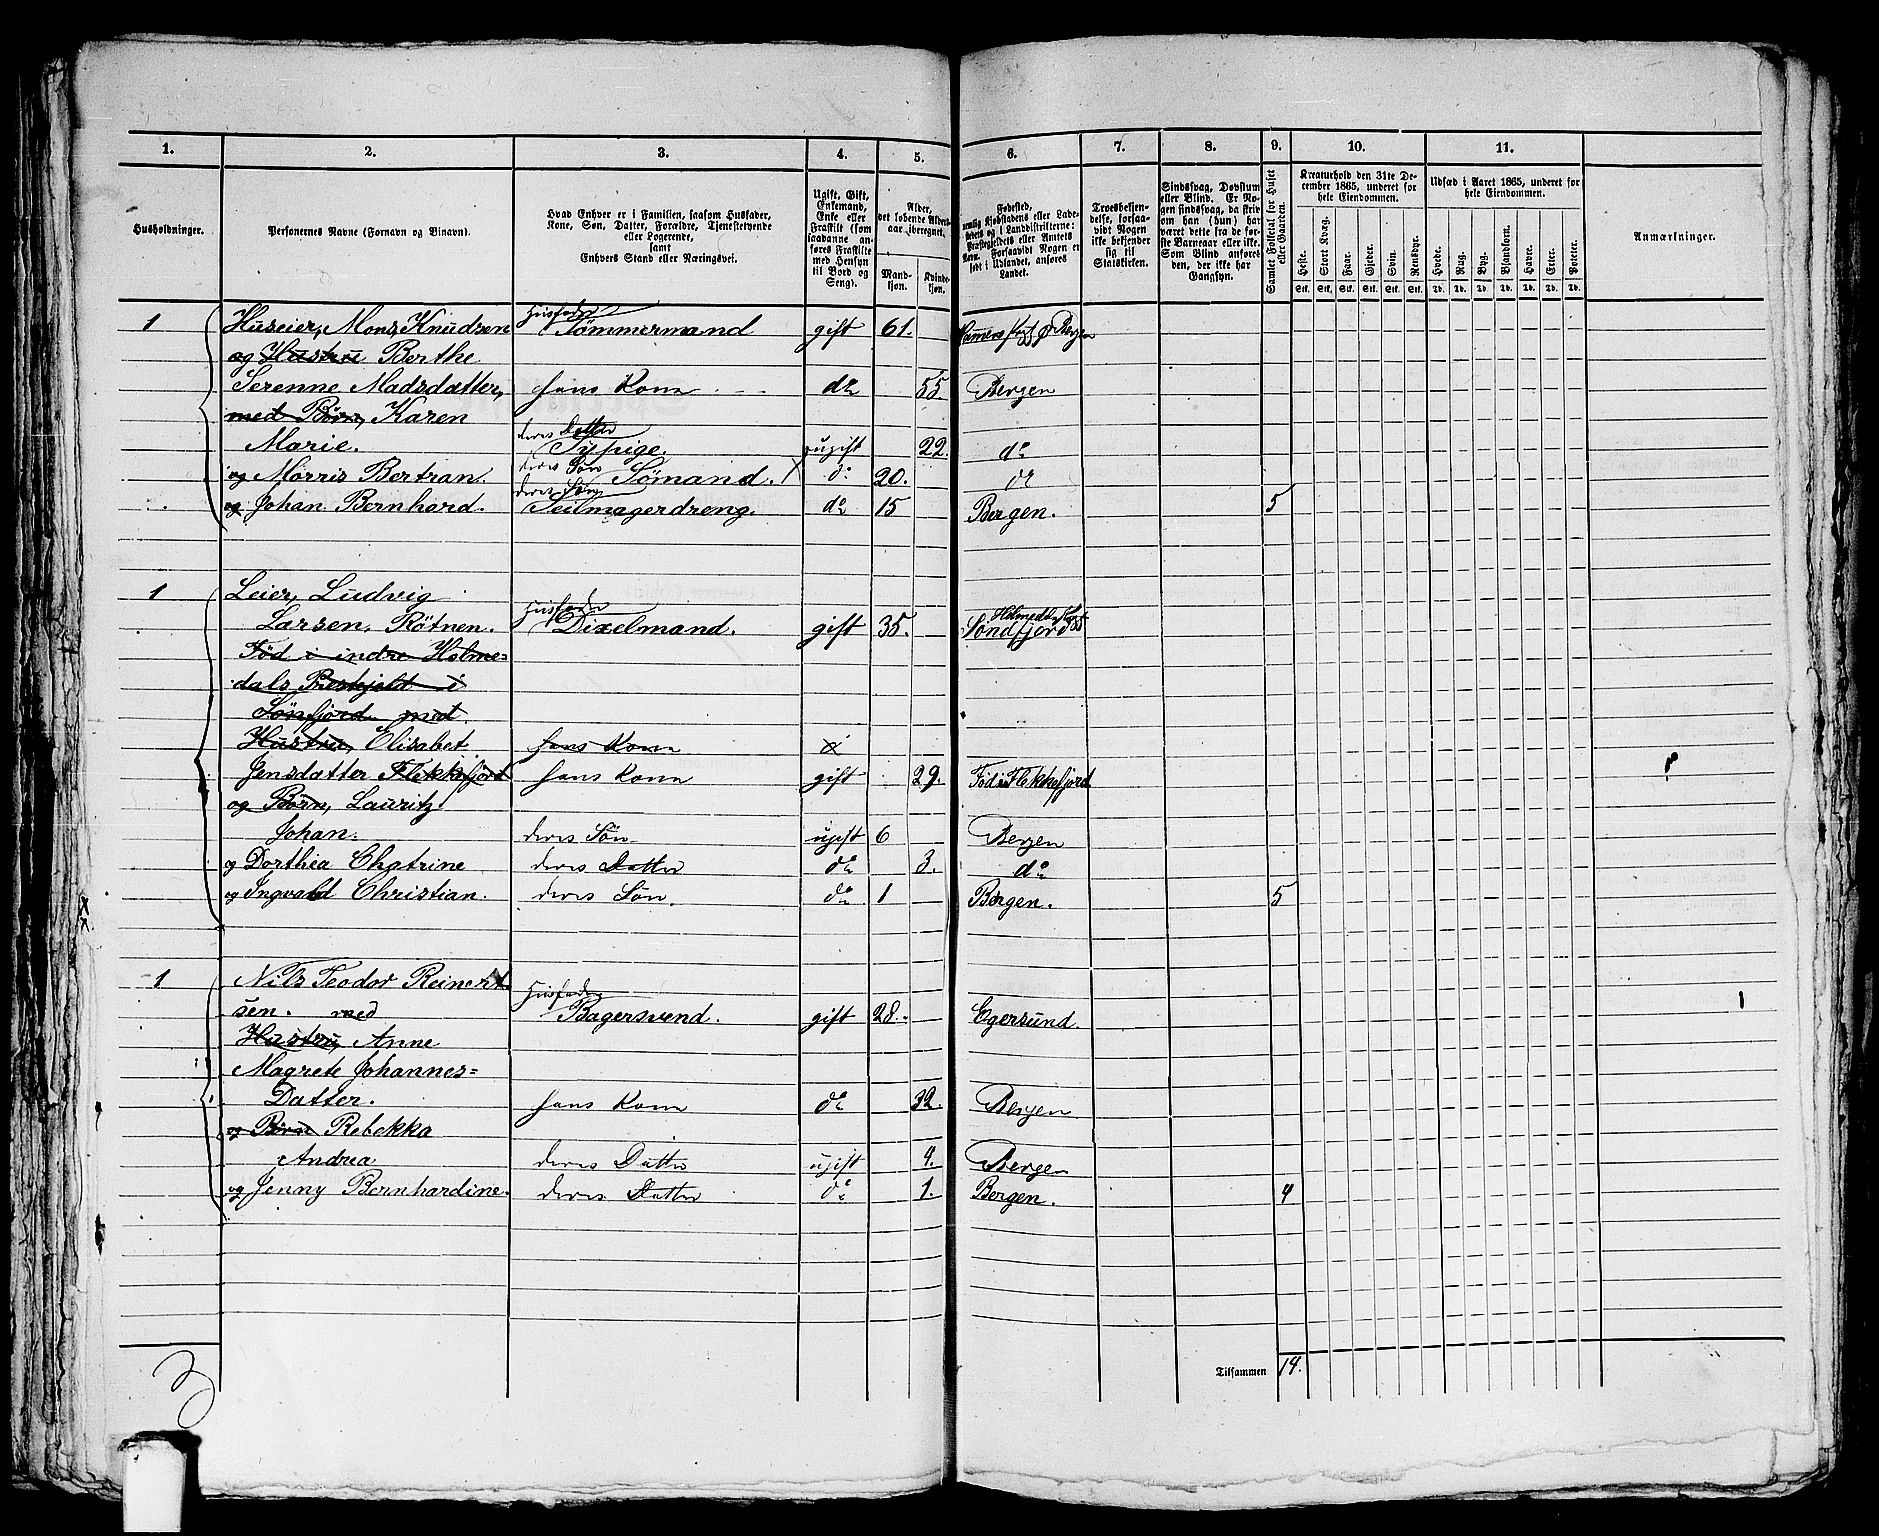 1. 2. 3. 4. 5. 6. 7. 8. 9. 10. 11.
Husholdninger.
Personernes Navne (Fornavn og Binavn).
Hvad Enhver er i Familien, saasom Husfader,
Kone, Søn, Datter, Forældre, Tjenestetyende
eller Logerende,
samt
Enhvers Stand eller Næringsvei.
Ugift, Gift,
Enkemand,
Enke eller
Fraskilt (som
saadanne an-
føres Fraskilte
med Hensyn
til Bord og
Seng).
Alder,
det løbende Alders-
aar iberegnet.
Mand-
kjøn.
Kvinde-
kjøn.
Fødested,
nemlig Kjøbstadens eller Lade-
stedets og i Landdistrikterne:
Præstegjeldets eller Amtets
Navn. Forsaavidt Nogen er
født i Udlandet, anføres
Landet.
Troesbekjen-
delse, forsaa-
vidt Nogen
ikke bekjender
sig til
Statskirken.
Sindssvag, Døvstum
eller Blind. Er No-
gen sindssvag, da skriv
om han (hun) har
været dette fra de før-
ste Barneaar eller ikke.
Som Blind anføres
den, der ikke har
Gangsyn.
Samlet Folketal for Huset
eller Gaarden.
Kreaturhold den 31te De-
cember 1865, underet for
hele Eiendommen.
Heste. Stort Kvæg. Faar. Gjeder. Svin. Rensdyr.
Stk. Stk. Stk. Stk. Stk. Stk.
Udsæd i Aaret 1865, underet for
hele Eiendommen.
Hvede. Rug. Byg. Blandkorn. Havre. Erter. Poteter.
Td. Td. Td. Td. Td. Td. Td.
Anmærkninger.
1 Huseier, Mons Knudsen Husfader Tømmermand gift 61. Bergen
og Hustru Berthe
Serenne Madsdatter, hans Kone d° 55. Bergen
med Børn, Karen
Marie. deres Datter Sypige. ugift 22. d°
og Morris Bertran. deres Søn Sømand. X d° 20. d°
og Johan Bernhard. deres Søn Seilmagerdreng. d° 15 Bergen. 5
1 Leier, Ludvig
Larsen. Røtnen. Husfader Dixelmand. gift 35. Søndfjord
Fød i indre Holme=
dals Prestejeld i
Sønfjord med
Hustru, Elisabet hans Kone
Jensdatter Flekkefjord hans Kone gift 29. Fød i Flekkefjord
og Børn, Lauritz
Johan. deres Søn ugift 6 Bergen
og Dorthea Chatrine deres Datter d° 3. d°
og Ingvald Christian. deres Søn. d° 1 Bergen. 5
1 Nils Teodor Reinert
sen. med Husfader Bagersvend. gift 28. Egersund. 1
Hustru, Anne
Magrete Johannes=
Datter. hans Kone d° 32. Bergen
og Børn Rebekka
Andrea deres Datter ugift 4. Bergen
og Jenny Bernhardine. deres Datter d° 1. Bergen. 4
3
Tilsammen 14.